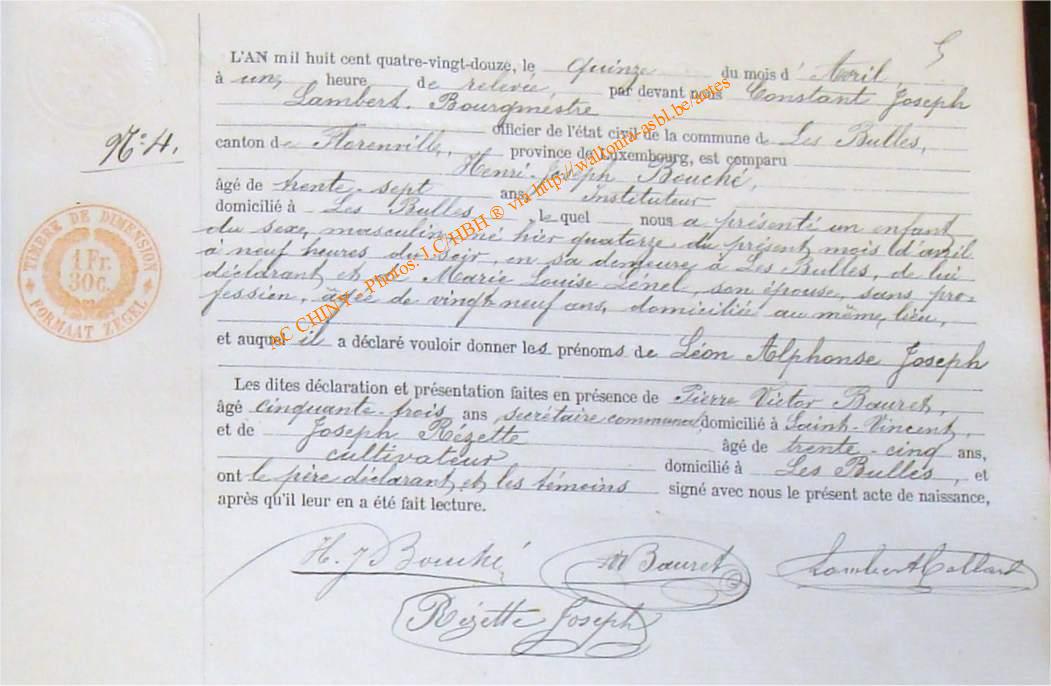 L'AN mil huit cent quatre-vingt-douze, le quinze du mois d'Avril,
à une heure de relevée, par devant nous Constant Joseph
Lambert, Bourgmestre
officier de l'état civil de la commune de Les Bulles,
N° 4.
canton de Florenville, province de Luxembourg, est comparu
Henri Joseph Bouché,
âgé de trente-sept ans, Instituteur
domicilié à Les Bulles, le quel nous a présenté un enfant
du sexe masculin, né hier quatorze du présent mois d'avril
à neuf heures du soir, en sa demeure à Les Bulles, de lui
déclarant et de Marie Louise Lenel, son épouse, sans pro-
fession, âgée de vingt-neuf ans, domiciliée au même lieu,
et auquel il a déclaré vouloir donner les prénoms de Léon Alphonse Joseph
Les dites déclaration et présentation faites en présence de Pierre Victor Bauret,
âgé cinquante-trois ans secrétaire communal, domicilié à Saint-Vincent,
et de Joseph Rézette âgé de trente-cinq ans,
cultivateur domicilié à Les Bulles, et
ont le père déclarant et les témoins signé avec nous le présent acte de naissance,
après qu'il leur en a été fait lecture.
H. J Bouché Bauret Lambert Collart
Rézette Joseph
TIMBRE DE DIMENSION
1 Fr.
30 c.
FORMAAT ZEGEL
AC CHINY - Photos: J.C HBH ® via http://wallonia-asbl.be/actes